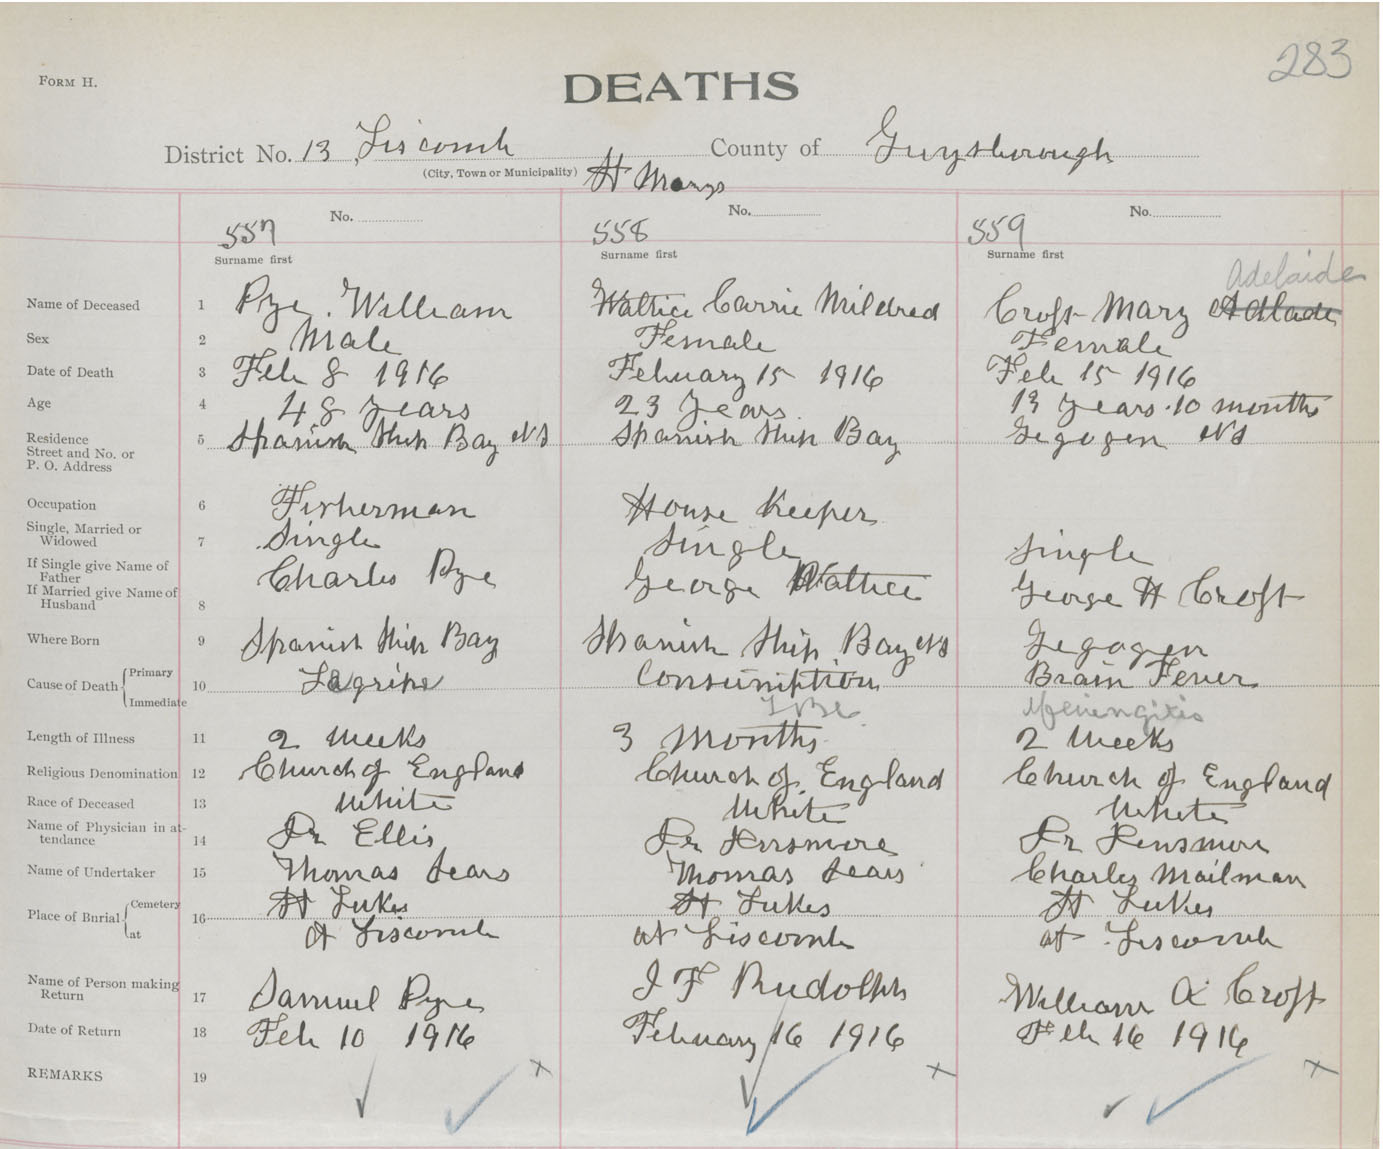 283
FORM H.
DEATHS
District No. 13 Liscomb County of Guysborough
(City, Town or Municipality) St Marys
No. No. No.
557 558 559
Surname first Surname first Surname first
Adelaide
Name of Deceased 1 Pye. William Wattice Carrie Mildred Croft Mary Adlade
Sex 2 Male Female Female
Date of Death 3 Feb 8 1916 February 15 1916 Feb 15 1916
Age 4 48 years 23 years 13 years 10 months
Residence Street and No. or P. O. Address 5 Spanish Ship Bay NS Spanish Ship Bay Gegogen NS
Occupation 6 Fisherman House Keeper
Single, Married or Widowed 7 Single Single Single
If Single give Name of Father If Married give Name of Husband 8 Charles Pye George Wattice George H Croft
Where Born 9 Spanish Ship Bay Spanish Ship Bay NS Gegogen
Cause of Death Primary Immediate 10 Lagripe Consumption Brain Fever
Menengitis
Length of Illness 11 2 weeks 3 Months 2 weeks
Religious Denomination 12 Church of England Church of England Church of England
Race of Deceased 13 White White White
Name of Physician in attendance 14 Dr Ellis Dr Densmore Dr Densmore
Name of Undertaker 15 Thomas Sears Thomas Sears Charles Mailman
Place of Burial Cemetery at 16 St Lukes St Lukes St Lukes
at Liscomb at Liscomb at Liscomb
Name of Person making Return 17 Samuel Pye J F Rudolph William A Croft
Date of Return 18 Feb 10 1916 February 16 1916 Feb 16 1916
REMARKS 19